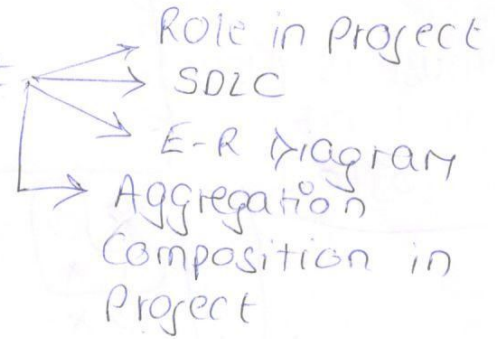 Role in Project
SDLC
E-R Diagram
Aggregation
Composition in
Project